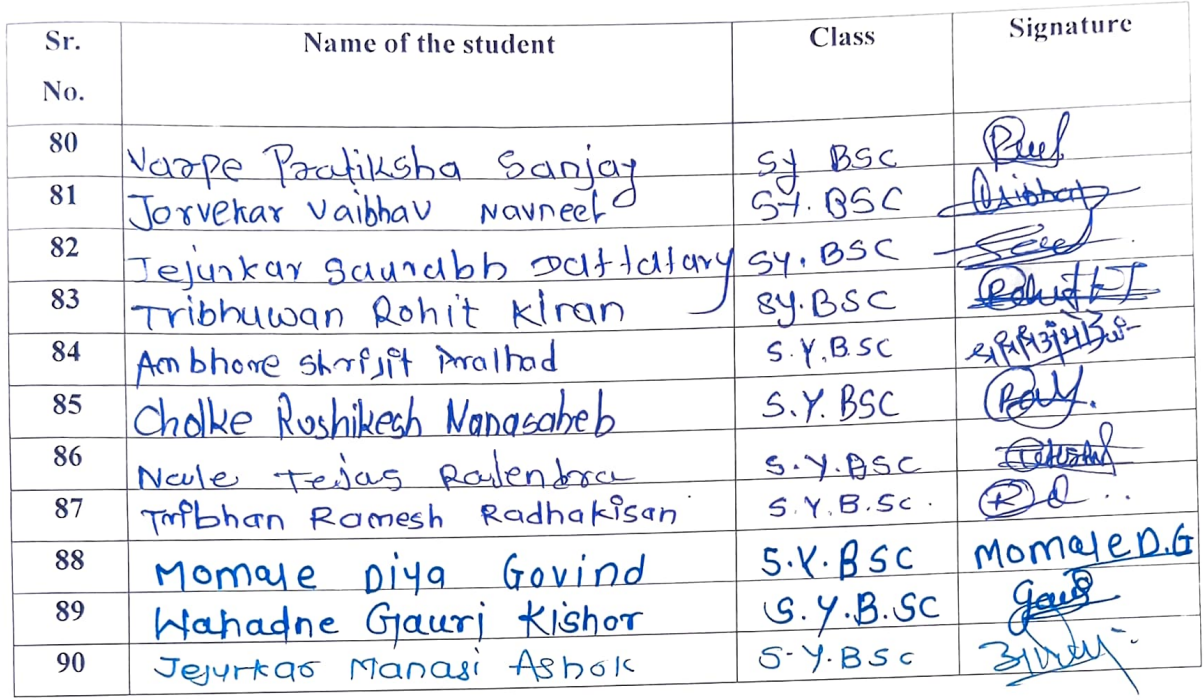 Sr. No. Name of the student Class Signature
80 Varpe Pratiksha Sanjay Sy BSC
81 Jorvekar Vaibhav Navneet SY. BSC Vaibhav
82 Jejurkar Saurabh Dattatary SY. BSC
83 Tribhuwan Rohit Kiran SY. BSC Rohit KT
84 Ambhore Shrijit Pralhad S.Y.B.SC
85 Cholke Rushikesh Nanasaheb S.Y. BSC
86 Navle Tejas Rajendra S.Y.BSC
87 Tribhan Ramesh Radhakisan S.Y.B.Sc.
88 Momale Diya Govind S.Y.BSC Momale D.G
89 Wahadne Gauri Kishor S.Y.B.SC Gauri
90 Jejurkar Manasi Ashok S.Y.BSc